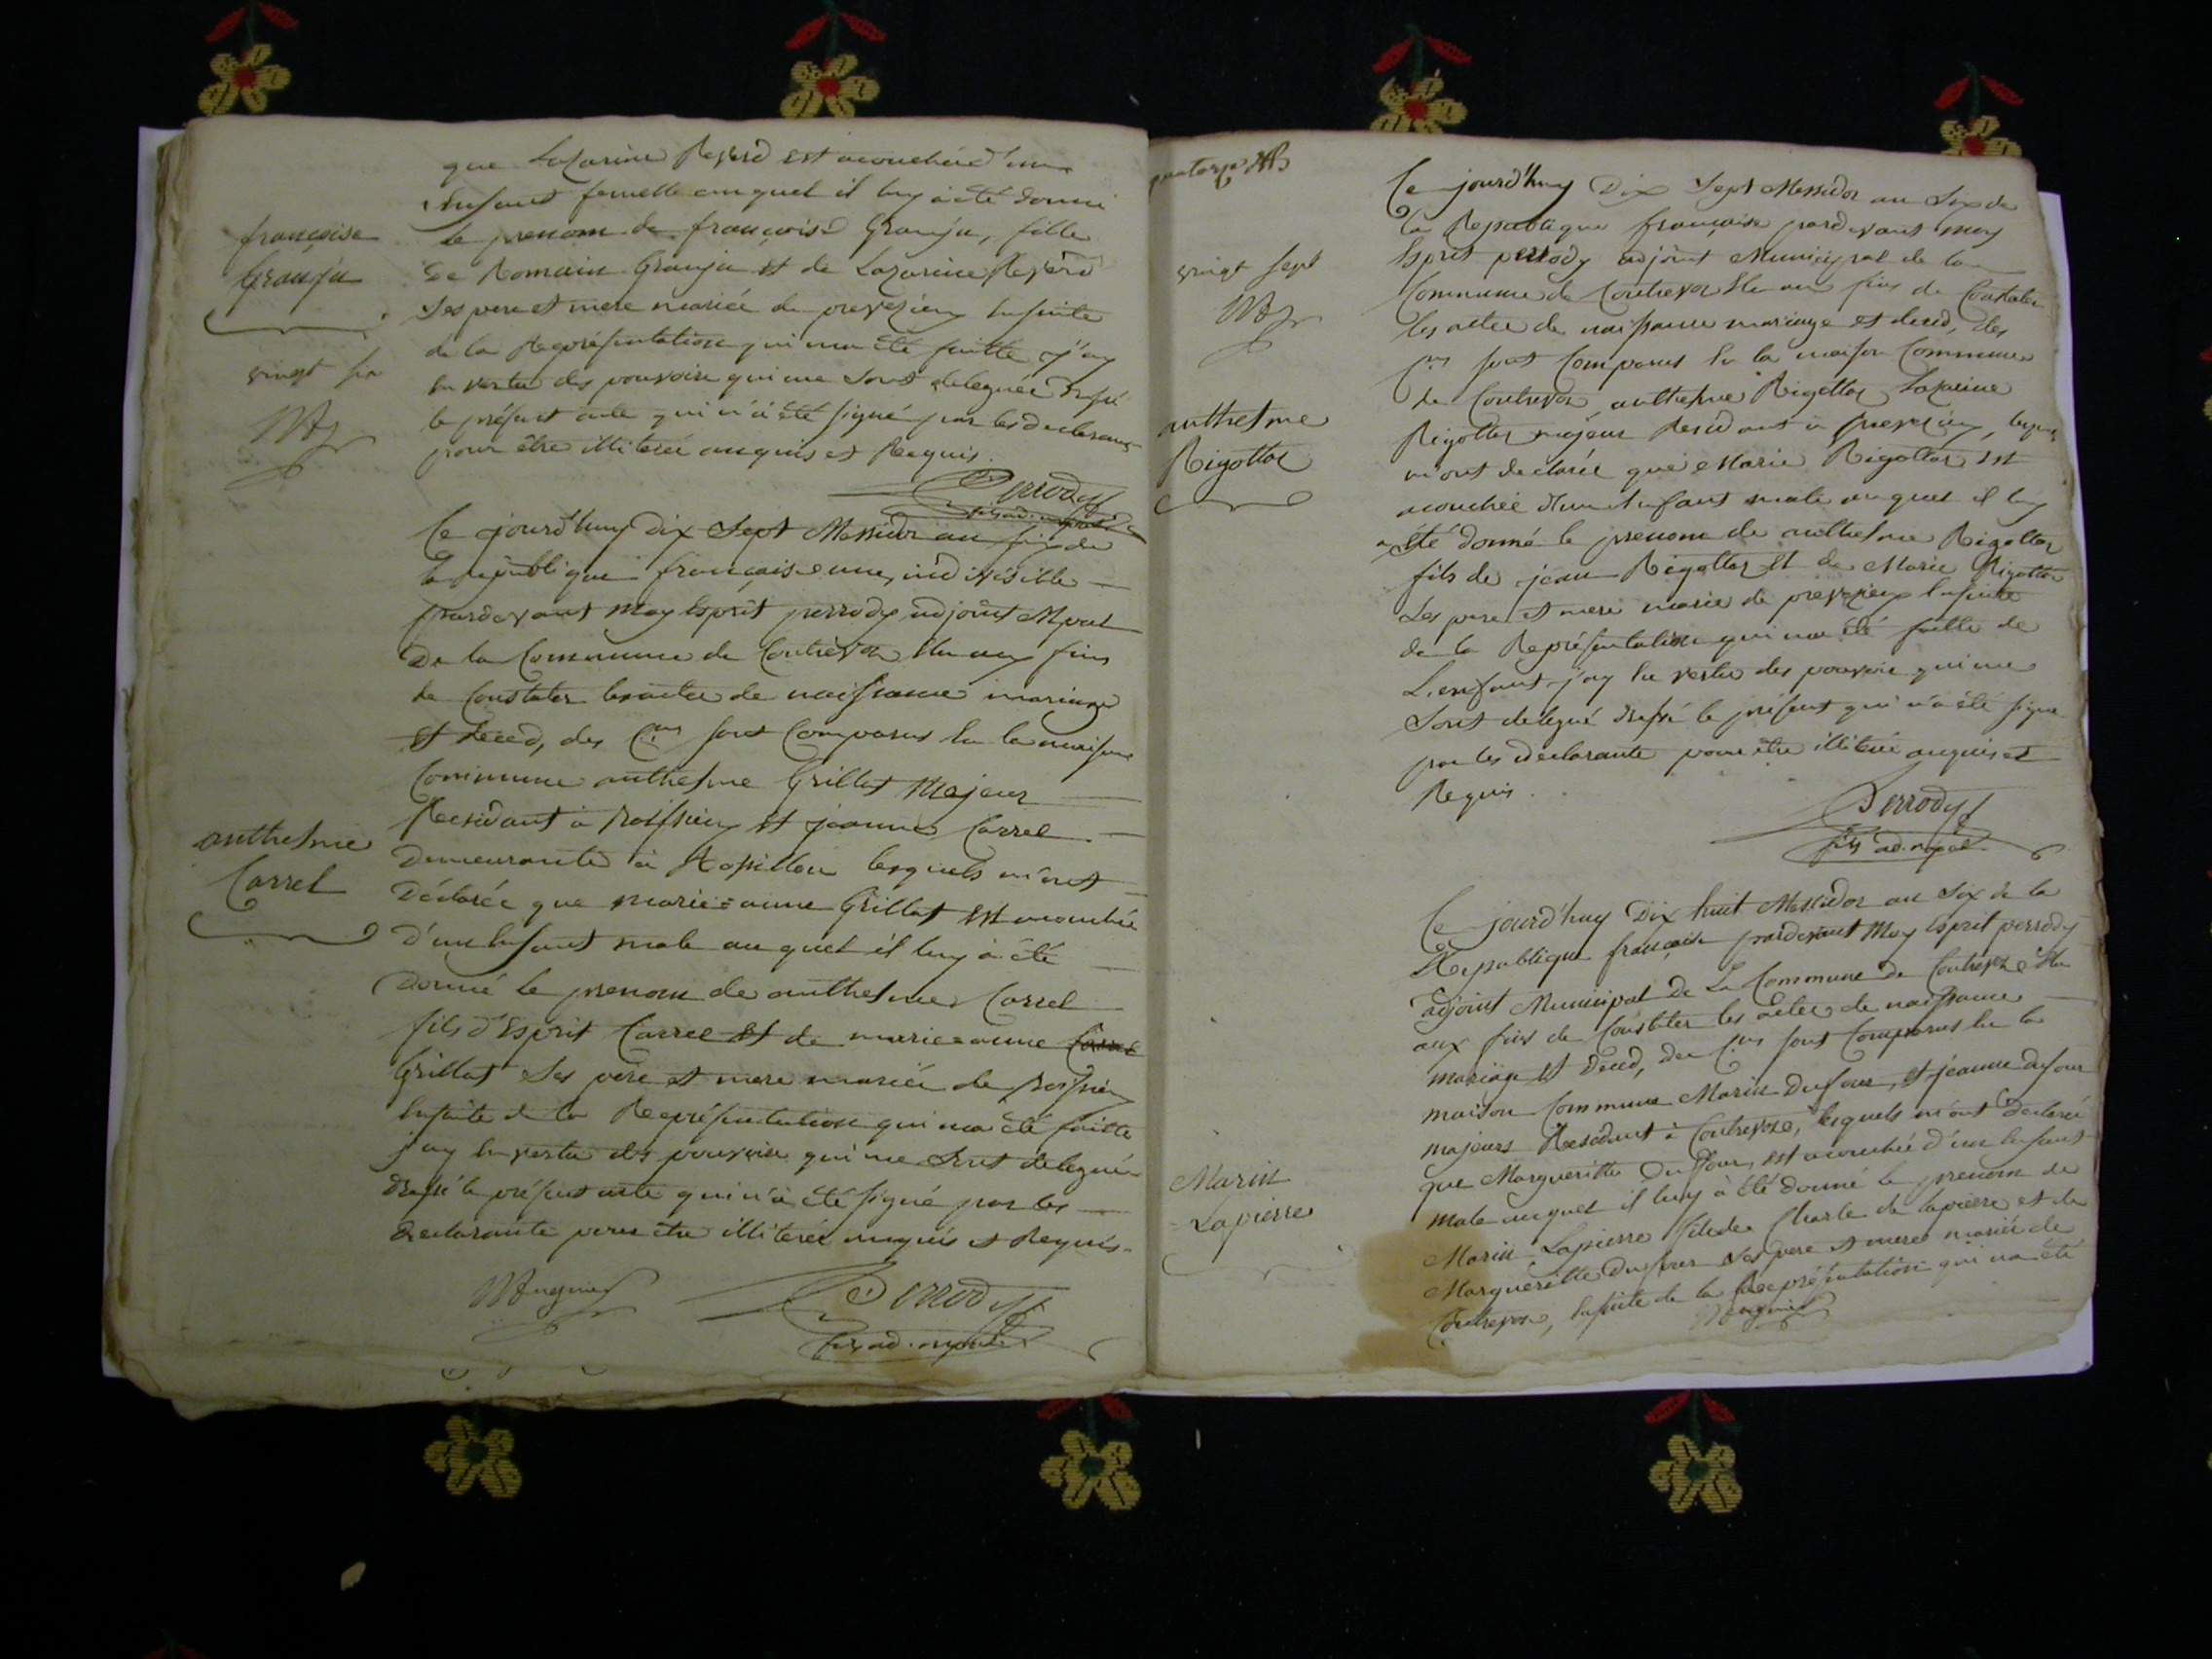 françoise
Granju
vingt six
anthesme
Carrel
que Lazarine est acouchée d'un
Enfant femelle auquel il luy à été donné
le prenom de françoise Granju, fille
De Romain Granju et de Lazarine
Ses pere et mere mariée de preveyzieu Ensuite
de la Représentation qui ma été faitte j'ay
En vertu des pouvoirs qui me Sont delegués Dressé
le présent acte qui n'à été signé par les declarants
pour être illiteré enquis et Requis.
Perrody
fils ad. mpal
Ce jourd'huy Dix Sept Messidor an six de
la republique française une, indivisible
pardevant moy Esprit perrody adjoint Mpal
De la Commune de Contrevoz Elu aux fins
de Constater les actes de naissance mariage
et deced, des Cens sont Comparus En la maison
Commune anthesme Grillat Majeur
Residant à et jeanne Carrel
Demeurante à Rossillon lesquels m'ont
Déclarée que marie=anne Grillat est acouchée
D'un Enfant male auquel il luy à été
Donné le prenom de anthesme Carrel
fils d'Esprit Carrel et de marie=anne
Grillat Ses père et mere mariée de
Ensuite de la Représentation qui ma été faitte
j'ay En vertu des pouvoirs qui me Sont delegués
Dressé le présent acte qui n'à été signé par les
declarants pour être illiterée enquis et Requis.
Perrody
fils ad. mpal
quatorze
vingt sept
anthesme
Rigottaz
Marin
Lapierre
Ce jourd'huy Dix Sept Messidor an Six de
la Republique française pardevant moy
Esprit perrody adjoint Municipal de la
Commune de Contrevoz Elu aux fins de Constater
les actes de naissance mariage et deced, des
Cns sont Comparus En la maison Commune
de Contrevoz, anthesme Rigottaz Lazarine
Rigottaz majeur Residant à preveyzieu, lesquels
m'ont declarée que Marie Rigottaz est
acouchée d'un Enfant male auquel il luy
a été donné le prenom de anthesme Rigottaz
fils de jean Rigottaz et de Marie Rigottaz
Ses pere et mere mariée de preveyzieu Ensuite
de la Représentation qui ma été faitte de
L'enfant j'ay En vertu des pouvoirs qui me
Sont delegué dressé le présent qui n'a été signé
par les declarants pour être illiteré enquis et
Requis.
Perrody
fils ad. mpal
Ce jourd'huy Dix huit Messidor an Six de la
Republique française pardevant Moy Esprit perrody
adjoint Municipal De La Commune de Contrevoz Elu
aux fins de Constater les actes de naissance
mariage et Deced, des Cns sont Comparus En la
maison Commune Marin Dufour, et jeanne dufour
majeurs Residant à Contrevoz, lesquels m'ont déclaré
que Margueritte Duffour, est acouchée d'un Enfant
male auquel il luy à été donné le prenom de
Marin Lapierre fils de Charle de lapierre et de
Margueritte Dufour Ses pere et mere mariée de
Contrevoz, Ensuite de la Représentation qui ma été